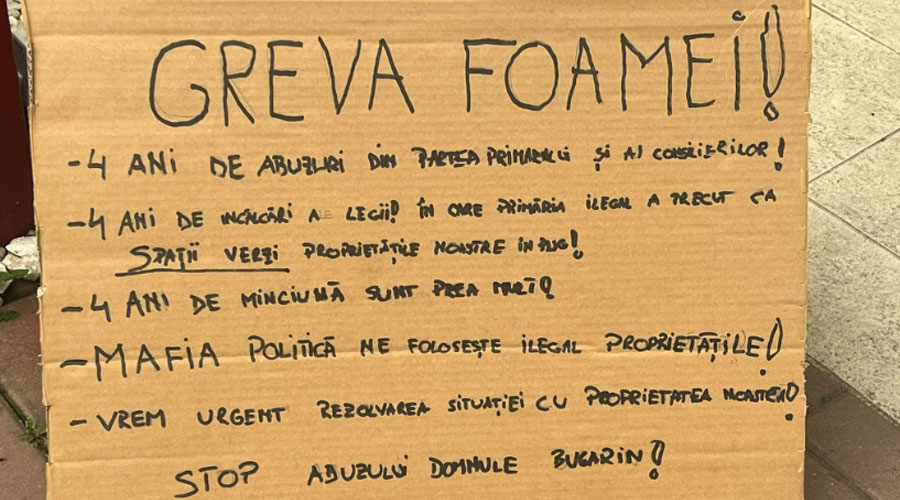 GREVA FOAMEI!
- 4 ANI DE ABUZURI DIN PARTEA PRIMARULUI ȘI AI CONSILIERILOR!
- 4 ANI DE INCĂLCĂRI A LEGII! ÎN CARE PRIMĂRIA ILEGAL A TRECUT CA
SPAȚII VERZI PROPRIETĂȚILE NOASTRE IN PUG!
- 4 ANI DE MINCIUNĂ SUNT PREA MULȚI!
- MAFIA POLITICĂ NE FOLOSEȘTE ILEGAL PROPRIETĂȚILE!
- VREM URGENT REZOLVAREA SITUAȚIEI CU PROPRIETATEA NOASTRĂ!
STOP ABUZULUI DOMNULE BUGARIN!